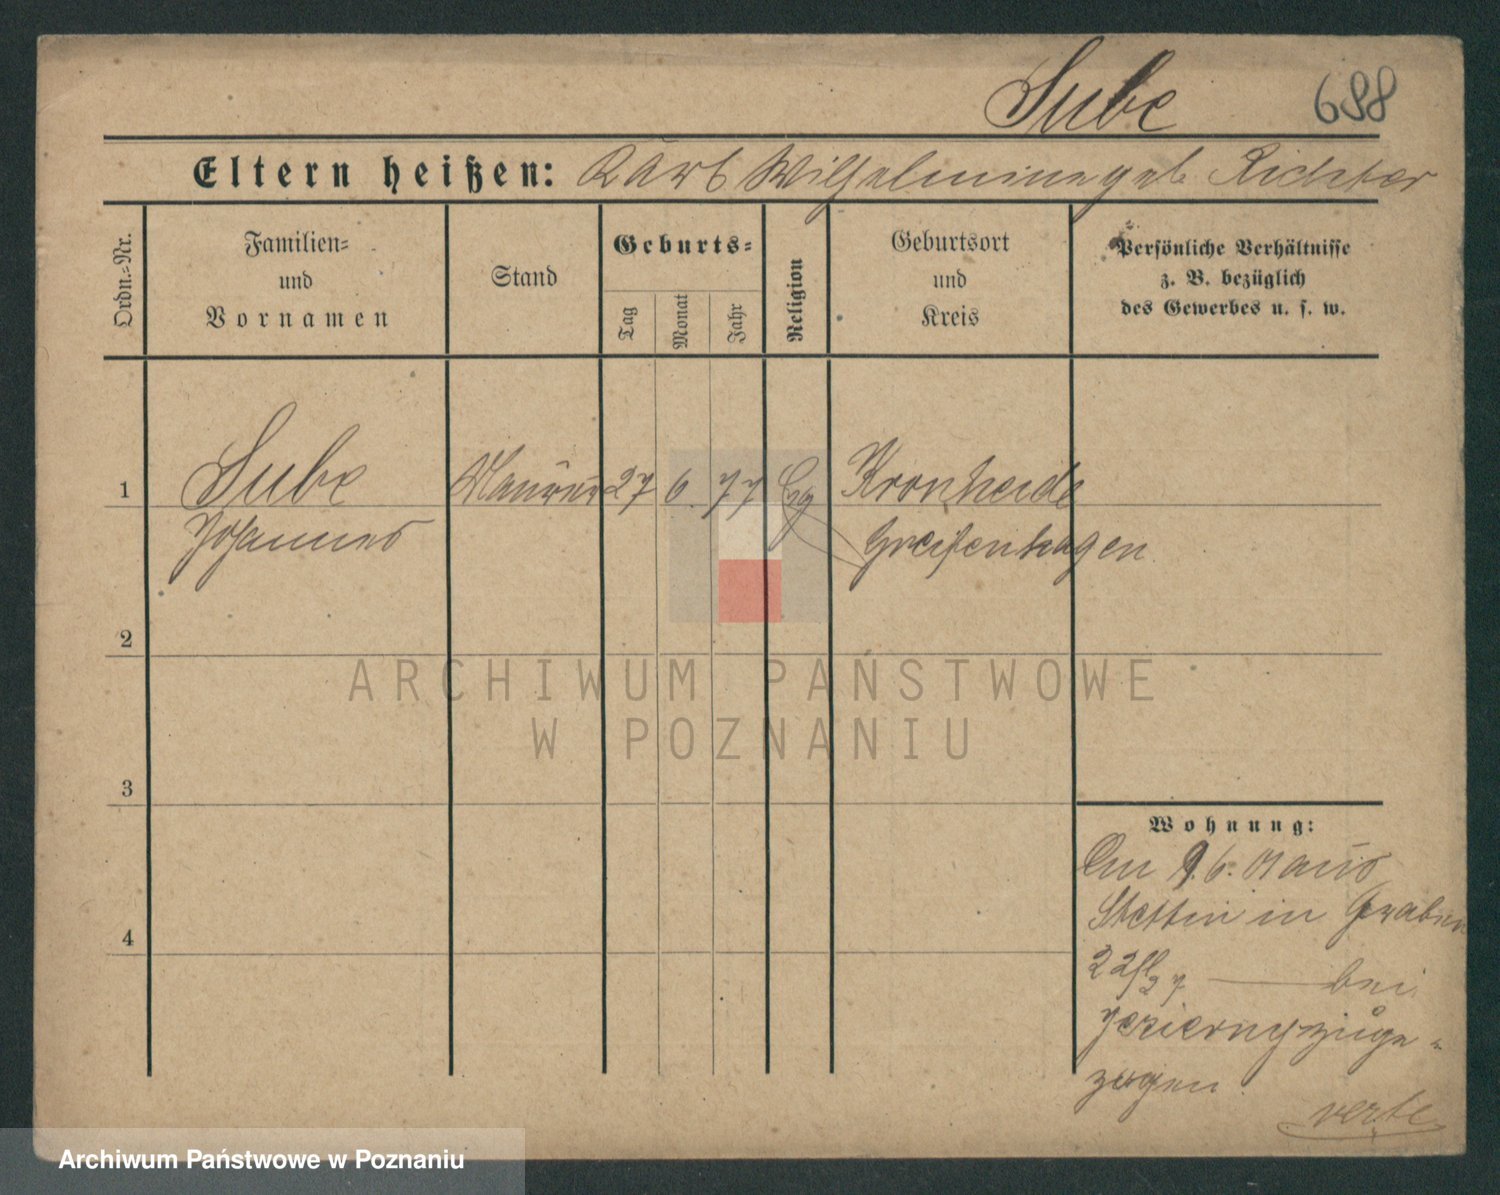 Sube 698
Eltern heißen: Karl Wilhelmine geb. Richter
Ordn.=Nr.
Familien=
und
Vornamen
Stand
Geburts=
Tag
Monat
Jahr
Religion
Geburtsort
und
Kreis
Persönliche Verhältnisse
z. B. bezüglich
des Gewerbes u. s. w.
1 Sube Maurer 27 6. 77 Eg Kronheide
Johannes Greifenhagen
2
3
4
Wohnung:
Am 9.6. aus
Stettin in Graben
bei
Jezierny zuge=
zogen
verte
ARCHIWUM PAŃSTWOWE
W POZNANIU
Archiwum Państwowe w Poznaniu